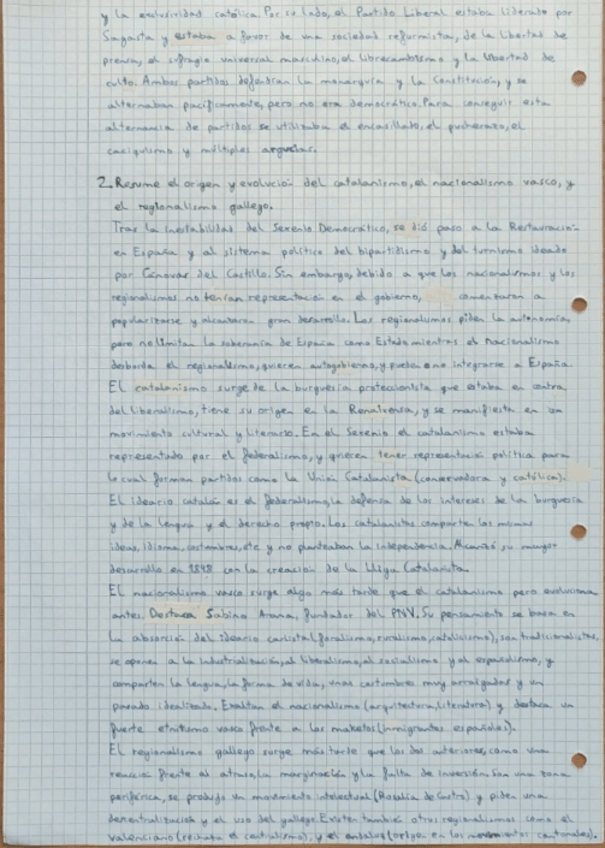 y la exclusividad católica. Por su lado, el Partido Liberal estaba liderado por
Sagasta y estaba a favor de una sociedad reformista, de la libertad de
prensa, el sufragio universal masculino, el librecambismo y la libertad de
culto. Ambos partidos defendían la monarquía y la Constitución, y se
alternaban pacíficamente, pero no era democrático. Para conseguir esta
alternancia de partidos se utilizaba el encasillado, el pucherazo, el
caciquismo y múltiples argucias.
2. Resume el origen y evolución del catalanismo, el nacionalismo vasco, y
el regionalismo gallego.
Tras la inestabilidad del Sexenio Democrático, se dió paso a la Restauración
en España y al sistema político del bipartidismo y del turnismo ideado
por Cánovas del Castillo. Sin embargo, debido a que los nacionalismos y los
regionalismos no tenían representación en el gobierno, comenzaron a
popularizarse y alcanzaron gran desarrollo. Los regionalismos piden la autonomía,
pero no limitan la soberanía de España como Estado mientras el nacionalismo
desborda el regionalismo, quieren autogobierno, y pueden o no integrarse a España.
El catalanismo surge de la burguesía proteccionista que estaba en contra
del liberalismo, tiene su origen en la Renaixensa, y se manifiesta en un
movimiento cultural y literario. En el Sexenio el catalanismo estaba
representado por el federalismo, y quieren tener representación política para
lo cual forman partidos como la Unión Catalanista (conservadora y católica).
El ideario catalán es el federalismo, la defensa de los intereses de la burguesía
y de la lengua y el derecho propio. Los catalanistas comparten las mismas
ideas, idioma, costumbres, etc y no planteaban la independencia. Alcanzó su mayor
desarrollo en 1898 con la creación de la Lliga Catalanista.
El nacionalismo vasco surge algo más tarde que el catalanismo pero evoluciona
antes. Destaca Sabino Arana, fundador del PNV. Su pensamiento se basa en
la absorción del ideario carlista (foralismo, ruralismo, catolicismo), son tradicionalistas,
se oponen a la industrialización, al liberalismo, al socialismo y al españolismo, y
comparten la lengua, la forma de vida, unas costumbres muy arraigadas y un
pasado idealizado. Exaltan el nacionalismo (arquitectura, literatura) y destaca un
fuerte etnitismo vasco frente a los maketos (inmigrantes españoles).
El regionalismo gallego surge más tarde que los dos anteriores, como una
reacción frente al atraso, la marginación y la falta de inversión. Son una zona
periférica, se produjo un movimiento intelectual (Rosalía de Castro) y piden una
descentralización y el uso del gallego. Existen también otros regionalismos como el
valenciano (rechaza el centralismo), y el andaluz (origen en los movimientos cantonales).